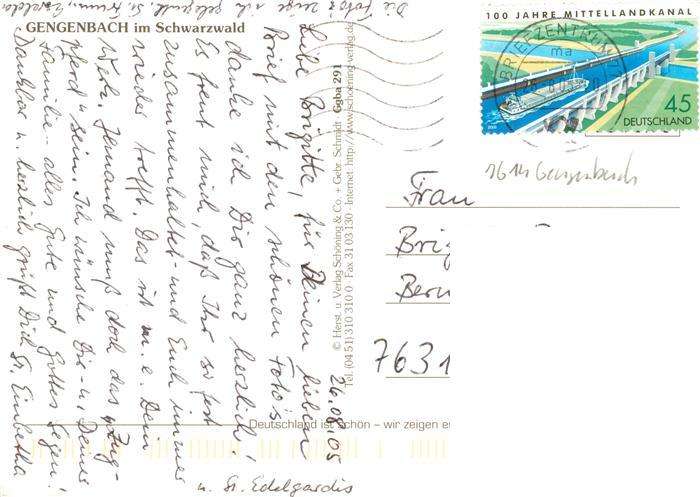 GENGENBACH im Schwarzwald
26.08.05
Liebe Brigitte, für Deinen lieben
Brief mit den schönen Foto's
danke ich Dir ganz herzlich.
Es freut mich, daß Ihr so fest
zusammenhaltet und Euch immer
wieder trefft. Das ist m. e. Dein
Werk. Jemand muß doch das Zug-
pferd sein. Ich wünsche Dir u. Deiner
Familie alles Gute und Gottes Segen!
Dankbar u. herzlich grüßt Dich Sr. Eimbetha
u. Sr. Edelgardis
Die Foto's zeige ich gelegentl. Sr.
© Herst. u. Verlag Schöning & Co. + Gebr. Schmidt Ggba 291
Tel. (04 51) 310 310 0 · Fax 31 03 130 · Internet: http://www.schoening-verlag.de
Deutschland ist schön – wir zeigen es
100 JAHRE MITTELLANDKANAL
45
DEUTSCHLAND
BRIEFZENTRUM
ma
7614 Gengenbach
Frau
Brig
Bern
7631